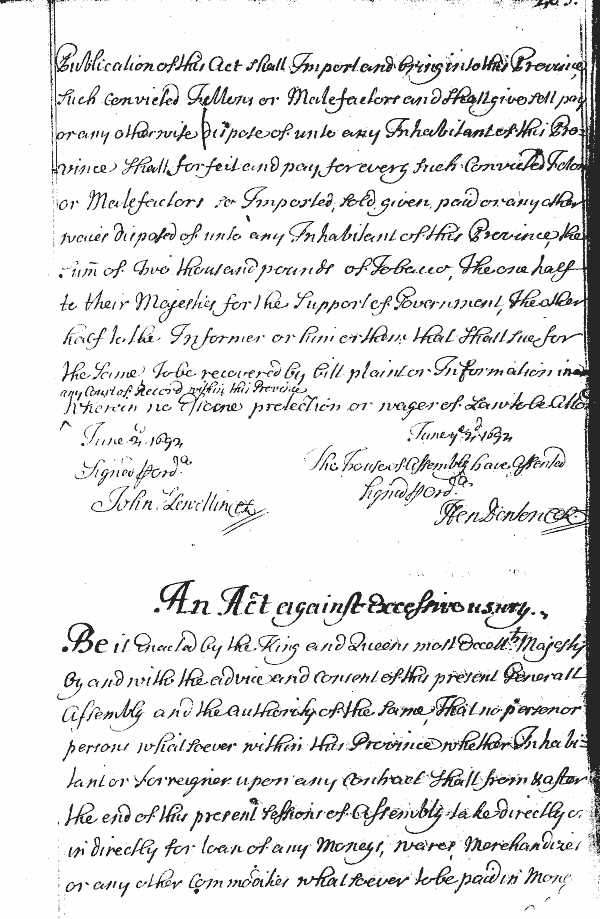 Publication of this Act shall Import and bring into this Province
such convicted Fellons or Malefactors and shall give sell pay
or any otherwise dispose of unto any Inhabitant of this Pro=
vince shall forfeit and pay for every such Convicted Felon
or Malefactors so Imported, sold, given, paid or any other
waies disposed of unto any Inhabitant of this Province, the
sum̃ of two thousand pounds of Tobacco, the one half
to their Majesties for the Support of Government, the other
half to the Informer or him or them that shall sue for
the same to be recovered by bill plaint or Information in
any Court of Record within this Province
wherein no Essoine protection or wager of Law to be Allo
^
June 2d. 1692 June ye 2d. 1692
Signed p Ordr The house of Assembly have Assented
John Llewellin Signed p Ordr
Hen Denton
An Act against Excessive usury.
Be it Enacted by the King and Queens most Excellt. Majesty
By and with the advice and Consent of this present Generall
Assembly and the authority of the same, That no person or
persons whatsoever within this Province whether Inhabi=
tant or Forreigner upon any Contract Shall from & after
the end of this present Sessions of Assembly take directly or
in directly for loan of any Moneys, wares, Merchandizes
or any other Commodities whatsoever to be paid in Mony